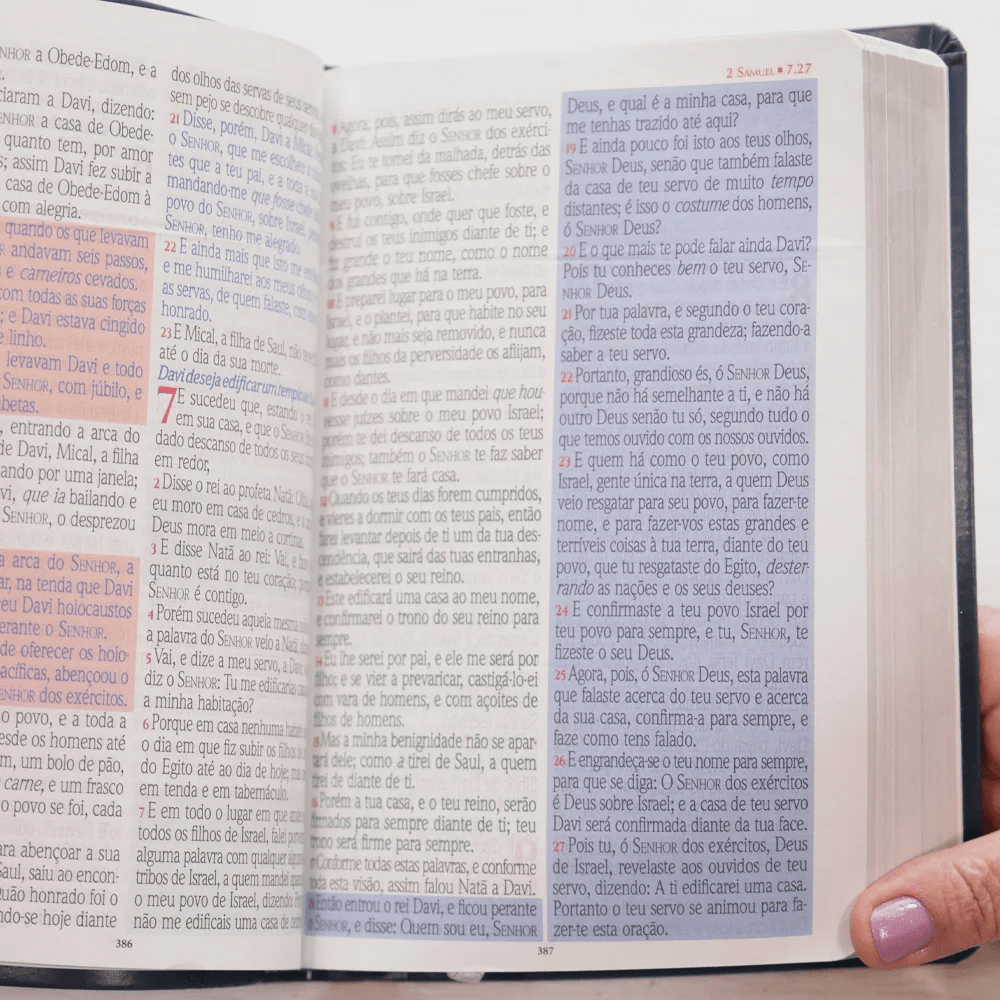 ENHOR a Obede-Edom, e a
ciaram a Davi, dizendo:
ENHOR a casa de Obede-
quanto tem, por amor
s; assim Davi fez subir a
casa de Obede-Edom à
com alegria.
quando os que levavam
R andavam seis passos,
s e carneiros cevados.
com todas as suas forças
; e Davi estava cingido
e linho.
levavam Davi e todo
SENHOR, com júbilo, e
betas.
, entrando a arca do
de Davi, Mical, a filha
ando por uma janela;
vi, que ia bailando e
SENHOR, o desprezou
a arca do SENHOR, a
ar, na tenda que Davi
eu Davi holocaustos
erante o SENHOR.
de oferecer os holo-
acíficas, abençoou o
ENHOR dos exércitos.
o povo, e a toda a
desde os homens até
m, um bolo de pão,
carne, e um frasco
o povo se foi, cada
ara abençoar a sua
Saul, saiu ao encon-
Quão honrado foi o
ndo-se hoje diante
dos olhos das servas de seus servos,
sem pejo se descobre qualquer
21 Disse, porém, Davi a Mical:
o SENHOR, que me escolheu
tes que a teu pai, e a toda a
mandando-me que fosse chefe
povo do SENHOR, sobre Israel,
SENHOR, tenho me alegrado.
22 E ainda mais que isto me
e me humilharei aos meus olhos
as servas, de quem falaste,
honrado.
23 E Mical, a filha de Saul, não
até o dia da sua morte.
Davi deseja edificar um templo
7 E sucedeu que, estando o
em sua casa, e que o SENHOR
dado descanso de todos os seus
em redor,
2 Disse o rei ao profeta Natã:
eu moro em casa de cedros, e a
Deus mora em meio a cortinas.
3 E disse Natã ao rei: Vai, e
quanto está no teu coração;
SENHOR é contigo.
4 Porém sucedeu aquela mesma
a palavra do SENHOR veio a Natã,
5 Vai, e dize a meu servo, a Davi:
diz o SENHOR: Tu me edificarias
a minha habitação?
6 Porque em casa nenhuma
o dia em que fiz subir os filhos
do Egito até ao dia de hoje;
em tenda e em tabernáculo.
7 E em todo o lugar em que
todos os filhos de Israel, falei
alguma palavra com qualquer
tribos de Israel, a quem mandei
o meu povo de Israel, dizendo:
não me edificais uma casa de
386
2 SAMUEL ■ 7.27
8 Agora, pois, assim dirás ao meu servo,
a Davi: Assim diz o SENHOR dos exérci-
tos: Eu te tomei da malhada, detrás das
ovelhas, para que fosses chefe sobre o
meu povo, sobre Israel.
9 E fui contigo, onde quer que foste, e
destruí os teus inimigos diante de ti; e
fiz grande o teu nome, como o nome
dos grandes que há na terra.
10 E preparei lugar para o meu povo, para
Israel, e o plantei, para que habite no seu
lugar, e não mais seja removido, e nunca
mais os filhos da perversidade os aflijam,
como dantes.
11 E desde o dia em que mandei que hou-
vesse juízes sobre o meu povo Israel;
porém te dei descanso de todos os teus
inimigos; também o SENHOR te faz saber
que o SENHOR te fará casa.
12 Quando os teus dias forem cumpridos,
e vieres a dormir com os teus pais, então
farei levantar depois de ti um da tua des-
cendência, que sairá das tuas entranhas,
e estabelecerei o seu reino.
13 Este edificará uma casa ao meu nome,
e confirmarei o trono do seu reino para
sempre.
14 Eu lhe serei por pai, e ele me será por
filho; e se vier a prevaricar, castigá-lo-ei
com vara de homens, e com açoites de
filhos de homens.
15 Mas a minha benignidade não se apar-
tará dele; como a tirei de Saul, a quem
tirei de diante de ti.
16 Porém a tua casa, e o teu reino, serão
firmados para sempre diante de ti; teu
trono será firme para sempre.
17 Conforme todas estas palavras, e conforme
toda esta visão, assim falou Natã a Davi.
18 Então entrou o rei Davi, e ficou perante
o SENHOR, e disse: Quem sou eu, SENHOR
Deus, e qual é a minha casa, para que
me tenhas trazido até aqui?
19 E ainda pouco foi isto aos teus olhos,
SENHOR Deus, senão que também falaste
da casa de teu servo de muito tempo
distantes; é isso o costume dos homens,
ó SENHOR Deus?
20 E o que mais te pode falar ainda Davi?
Pois tu conheces bem o teu servo, SE-
NHOR Deus.
21 Por tua palavra, e segundo o teu cora-
ção, fizeste toda esta grandeza; fazendo-a
saber a teu servo.
22 Portanto, grandioso és, ó SENHOR Deus,
porque não há semelhante a ti, e não há
outro Deus senão tu só, segundo tudo o
que temos ouvido com os nossos ouvidos.
23 E quem há como o teu povo, como
Israel, gente única na terra, a quem Deus
veio resgatar para seu povo, para fazer-te
nome, e para fazer-vos estas grandes e
terríveis coisas à tua terra, diante do teu
povo, que tu resgataste do Egito, dester-
rando as nações e os seus deuses?
24 E confirmaste a teu povo Israel por
teu povo para sempre, e tu, SENHOR, te
fizeste o seu Deus.
25 Agora, pois, ó SENHOR Deus, esta palavra
que falaste acerca do teu servo e acerca
da sua casa, confirma-a para sempre, e
faze como tens falado.
26 E engrandeça-se o teu nome para sempre,
para que se diga: O SENHOR dos exércitos
é Deus sobre Israel; e a casa de teu servo
Davi será confirmada diante da tua face.
27 Pois tu, ó SENHOR dos exércitos, Deus
de Israel, revelaste aos ouvidos de teu
servo, dizendo: A ti edificarei uma casa.
Portanto o teu servo se animou para fa-
zer-te esta oração.
387